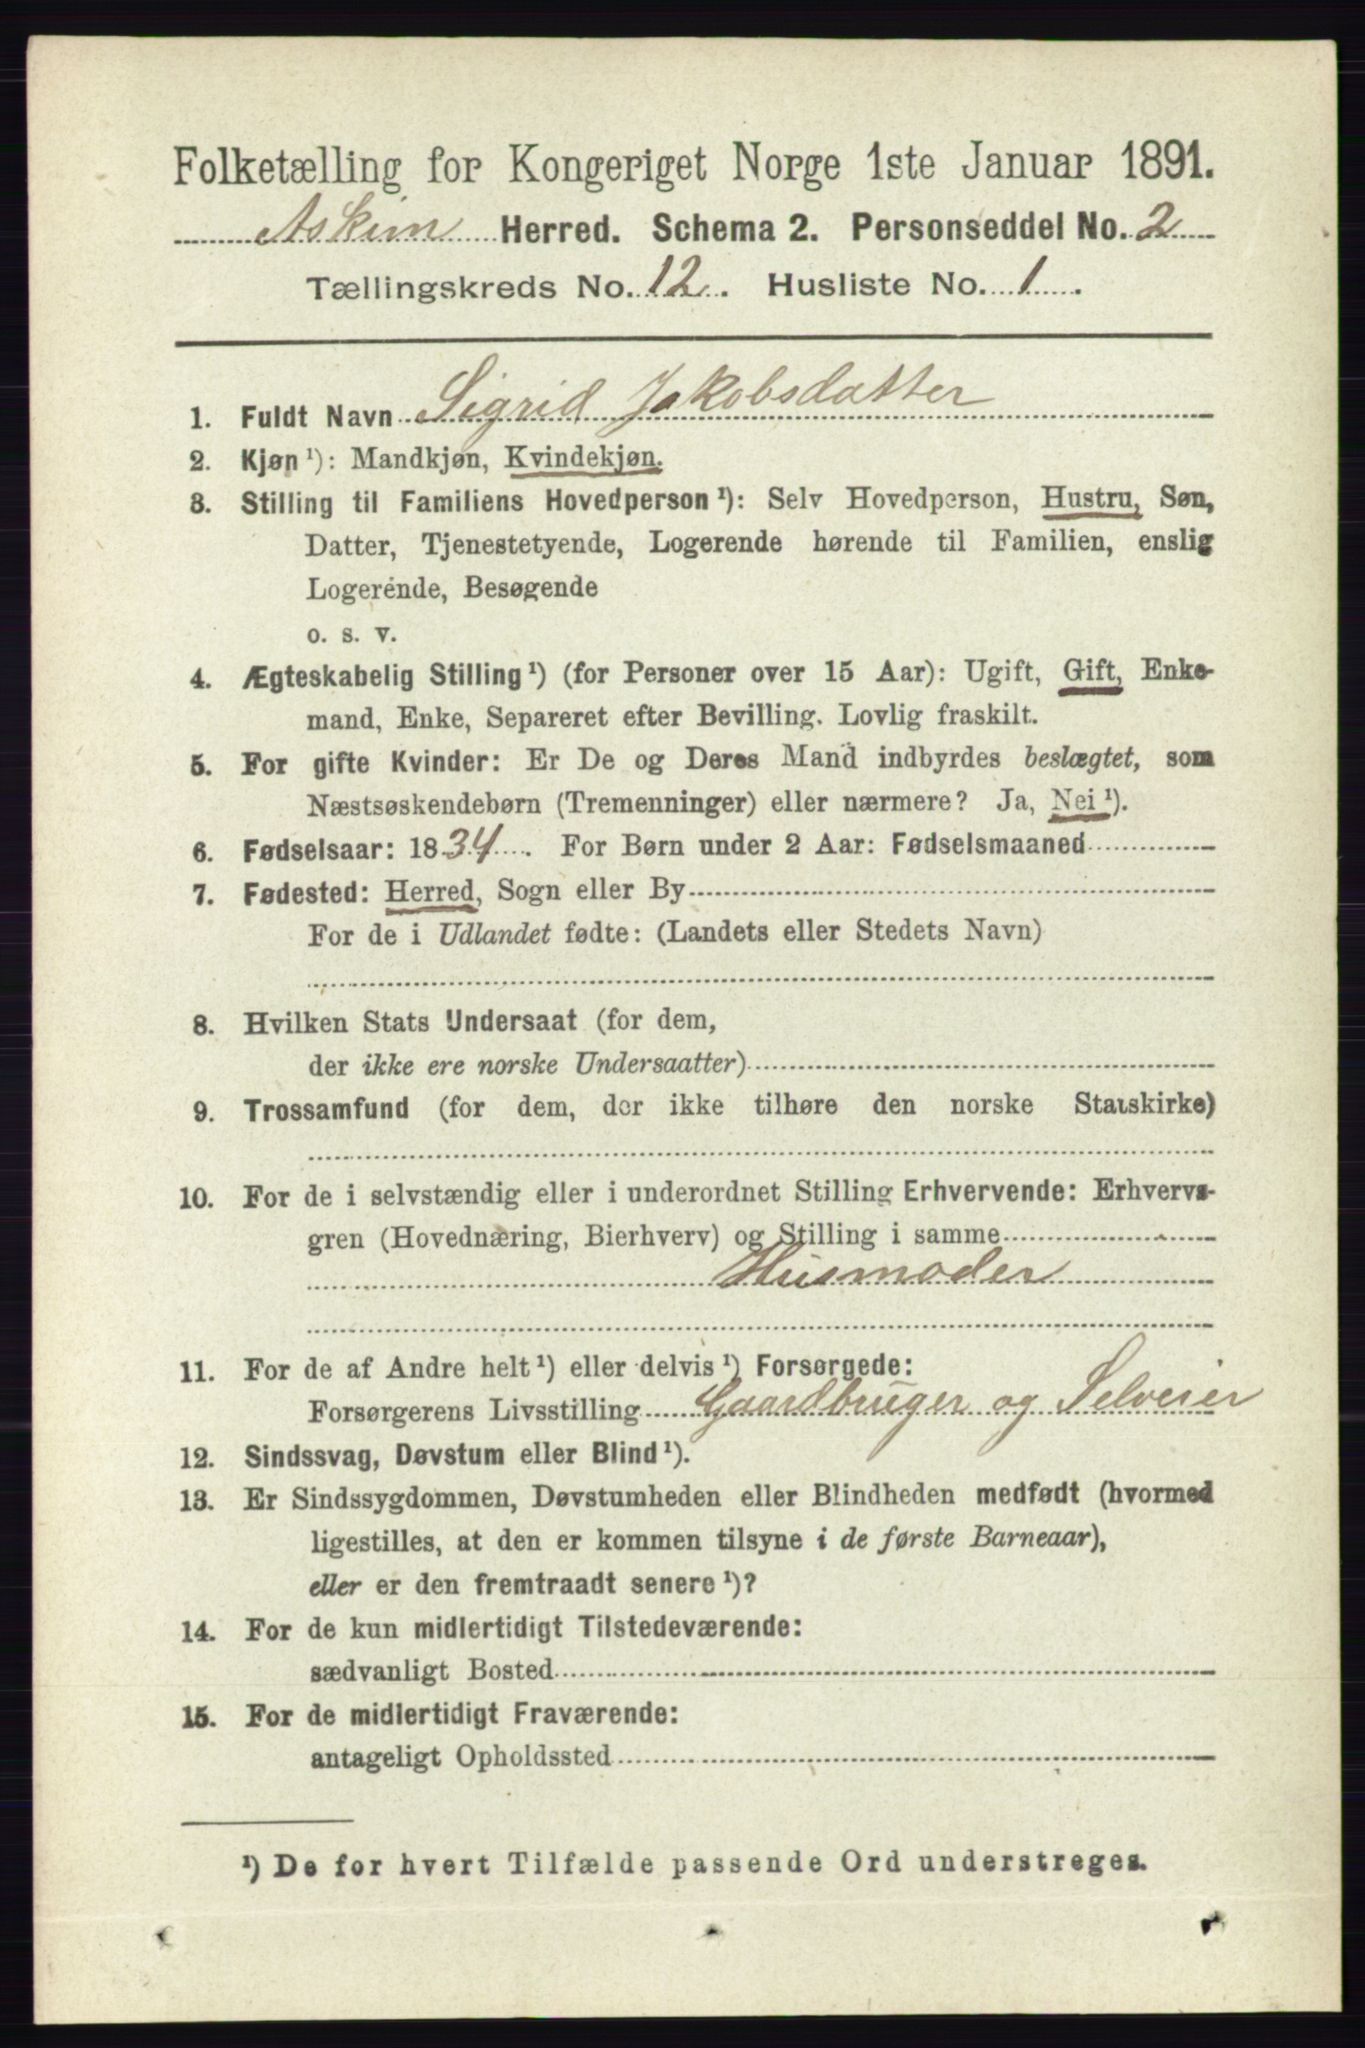 Folketælling for Kongeriget Norge 1ste Januar 1891.
Askim Herred. Schema 2. Personseddel No. 2
Tællingskreds No. 12. Husliste No. 1.
1. Fuldt Navn Sigrid Jakobsdatter
2. Kjøn ¹): Mandkjøn, Kvindekjøn.
3. Stilling til Familiens Hovedperson ¹): Selv Hovedperson, Hustru, Søn,
Datter, Tjenestetyende, Logerende hørende til Familien, enslig
Logerende, Besøgende
o. s. v.
4. Ægteskabelig Stilling ¹) (for Personer over 15 Aar): Ugift, Gift, Enke-
mand, Enke, Separeret efter Bevilling. Lovlig fraskilt.
5. For gifte Kvinder: Er De og Deres Mand indbyrdes beslægtet, som
Næstsøskendebørn (Tremenninger) eller nærmere? Ja, Nei ¹).
6. Fødselsaar: 1834. For Børn under 2 Aar: Fødselsmaaned
7. Fødested: Herred, Sogn eller By
For de i Udlandet fødte: (Landets eller Stedets Navn)
8. Hvilken Stats Undersaat (for dem,
der ikke ere norske Undersaatter)
9. Trossamfund (for dem, der ikke tilhøre den norske Statskirke)
10. For de i selvstændig eller i underordnet Stilling Erhvervende: Erhvervs-
gren (Hovednæring, Bierhverv) og Stilling i samme
Husmoder
11. For de af Andre helt ¹) eller delvis ¹) Forsørgede:
Forsørgerens Livsstilling Gaardbruger og Selveier
12. Sindssvag, Døvstum eller Blind ¹).
13. Er Sindssygdommen, Døvstumheden eller Blindheden medfødt (hvormed
ligestilles, at den er kommen tilsyne i de første Barneaar),
eller er den fremtraadt senere ¹)?
14. For de kun midlertidigt Tilstedeværende:
sædvanligt Bosted
15. For de midlertidigt Fraværende:
antageligt Opholdssted
¹) De for hvert Tilfælde passende Ord understreges.